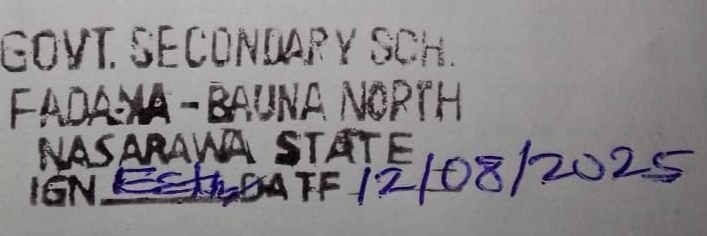 GOVT. SECONDARY SCH.
FADAMA - BAUNA NORTH
NASARAWA STATE
IGN DATE 12/08/2025